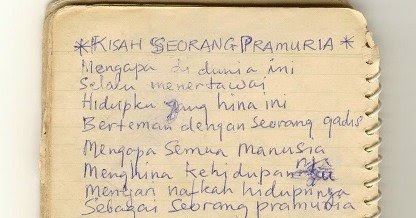 *KISAH SEORANG PRAMURIA*
Mengapa di dunia ini
Selalu menertawai
Hidupku yang hina ini
Berteman dengan seorang gadis
Mengapa semua manusia
Menghina kehidupannya
Mencari nafkah hidupnya
Sebagai seorang pramuria